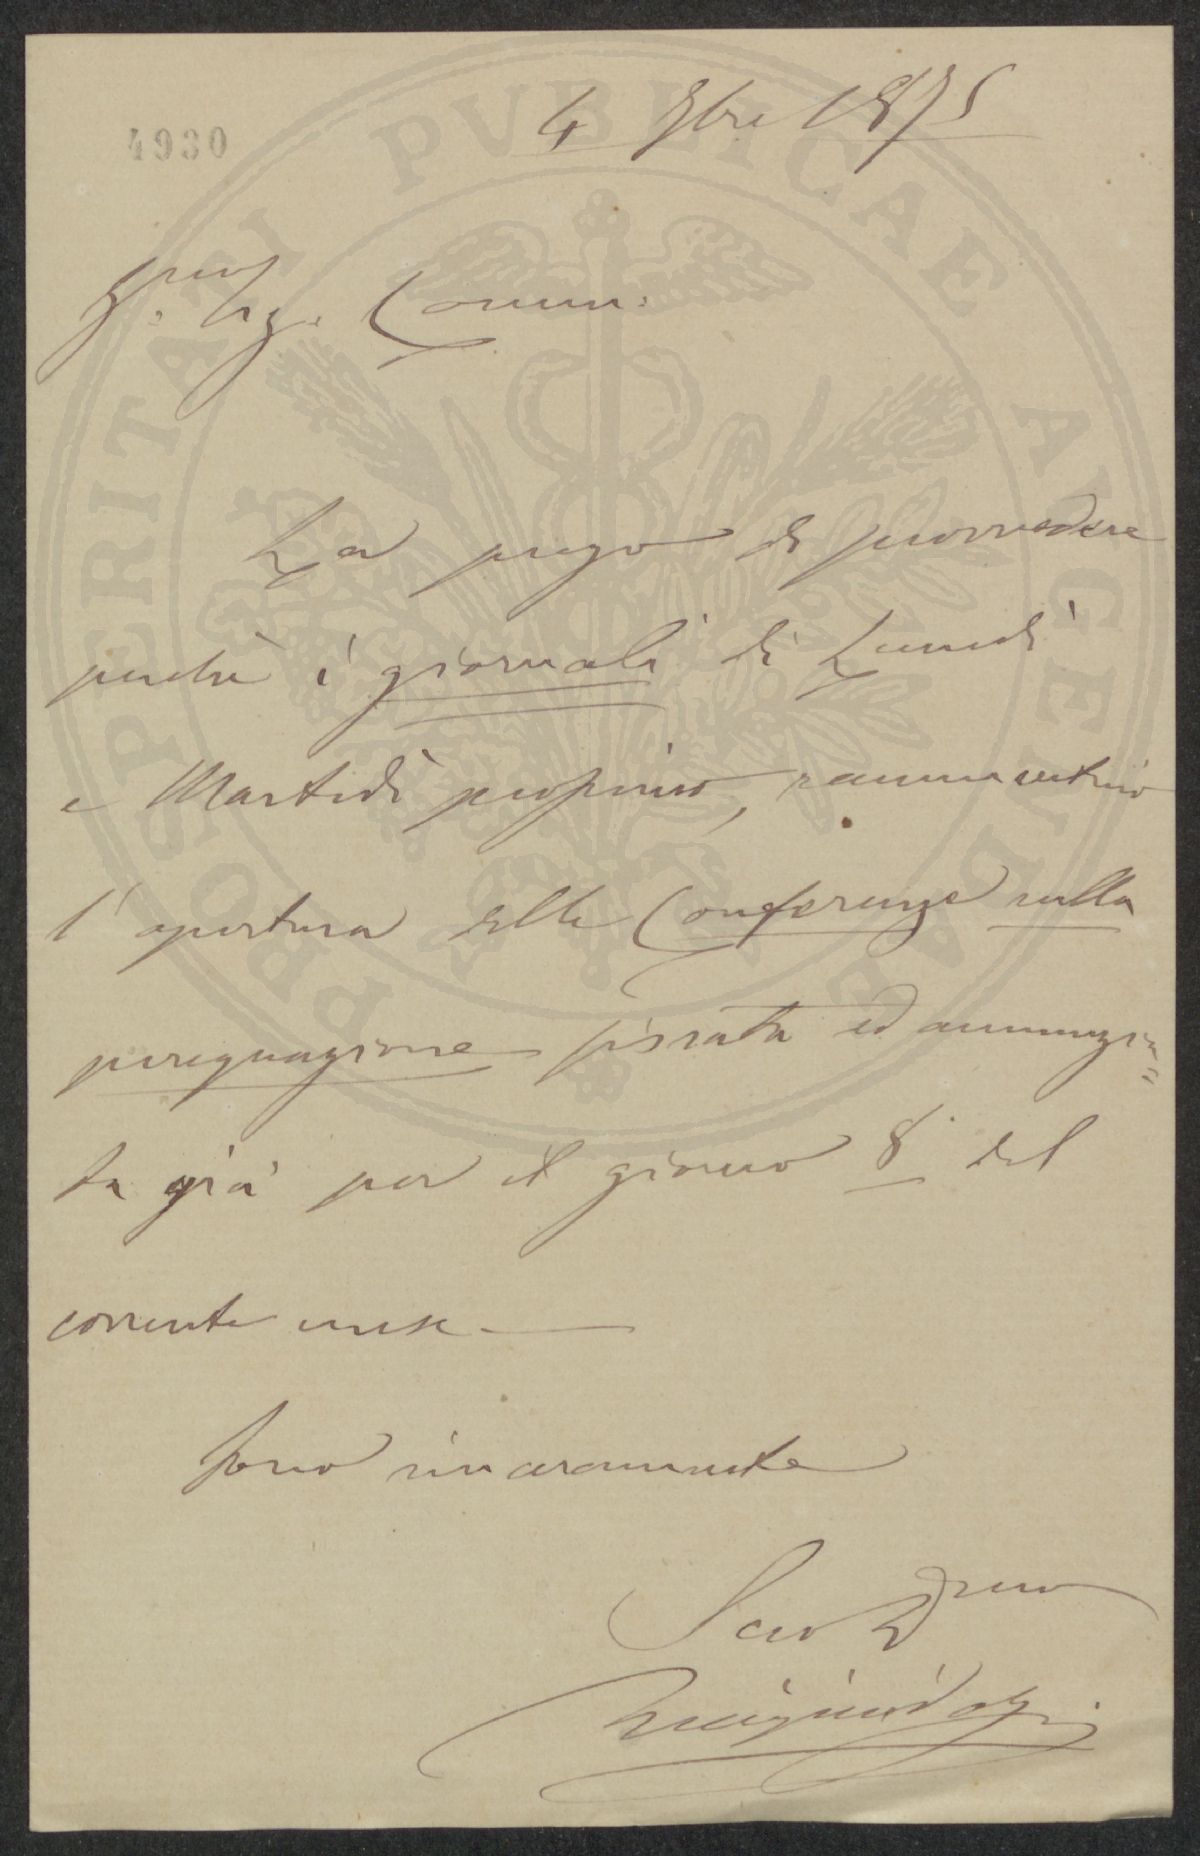 4930
4 9bre 1875
P. Sig. Comm.
La prego di provvedere
perchè i giornali di Lunedì
e Martedì prossimo, rammentino
l'apertura delle Conferenze sulla
perequazione fissata ed annunzia=
ta già per il giorno 8 del
corrente mese —
Sono sinceramente
Suo Dmo
PROSPERITATI PVBLICAE AVGENDAE